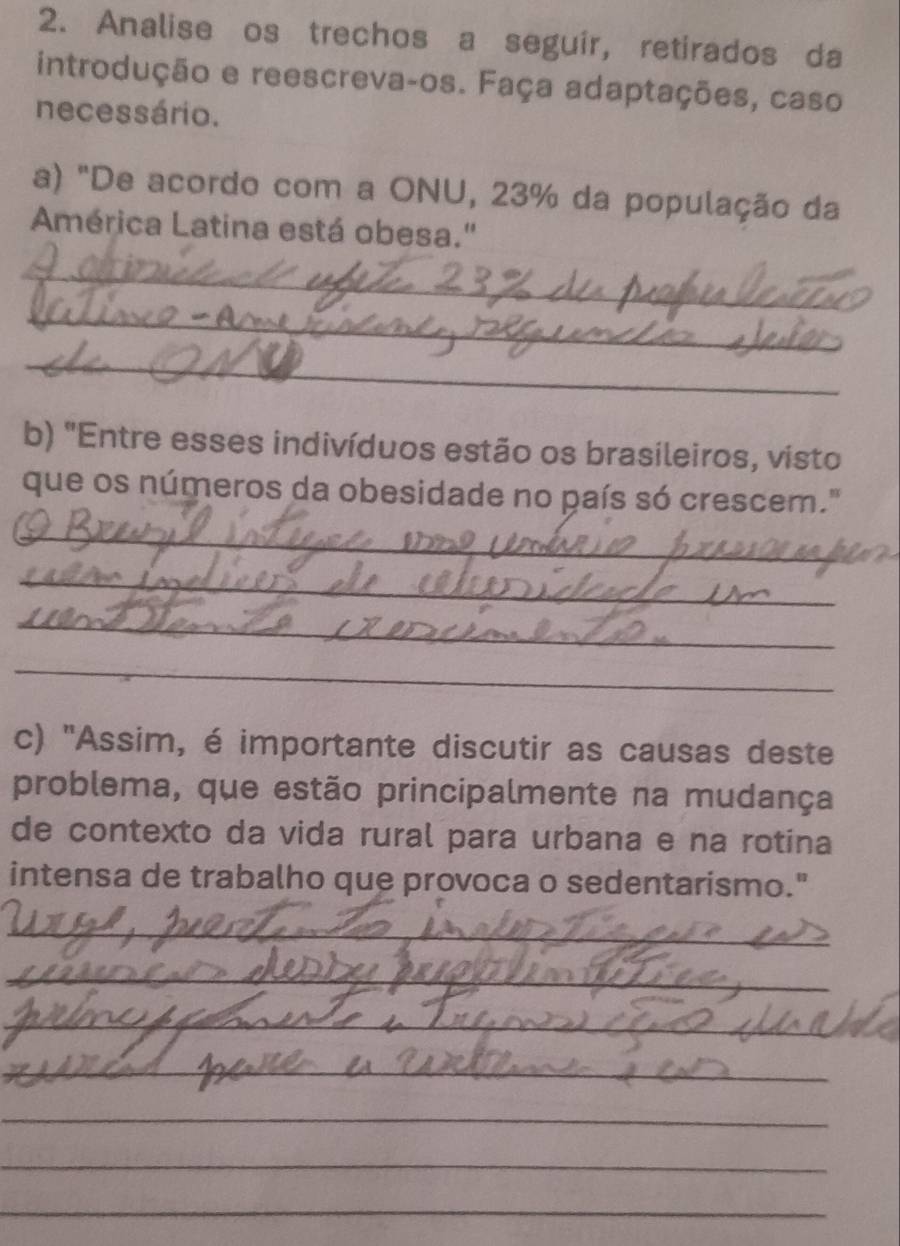 2. Analise os trechos a seguir, retirados da
introdução e reescreva-os. Faça adaptações, caso
necessário.
a) "De acordo com a ONU, 23% da população da
América Latina está obesa."
A afeta 23% da população
latino-Americana, segundo dados
da ONU
b) "Entre esses indivíduos estão os brasileiros, visto
que os números da obesidade no país só crescem."
O Brazil integra
índices de um
crescimento.
c) "Assim, é importante discutir as causas deste
problema, que estão principalmente na mudança
de contexto da vida rural para urbana e na rotina
intensa de trabalho que provoca o sedentarismo."
Urge, portanto as
principalmente a
rural para a urbana